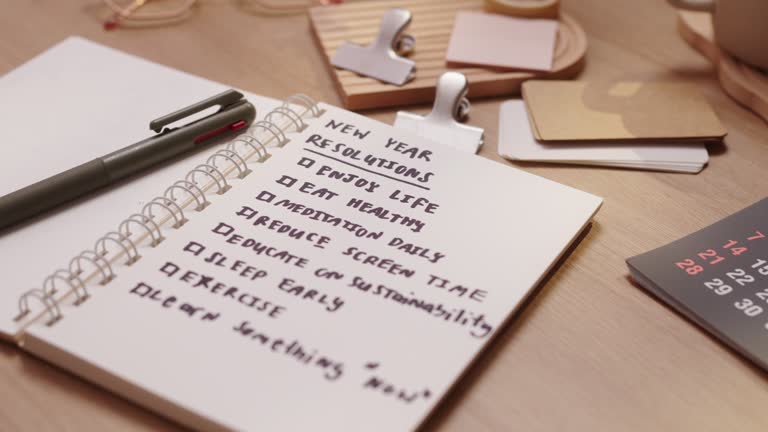 NEW YEAR
RESOLUTIONS
ENJOY LIFE
EAT HEALTHY
MEDITATION DAILY
REDUCE SCREEN TIME
EDUCATE ON SUSTAINABILITY
SLEEP EARLY
EXERCISE
LEARN SOMETHING "NOW"
7
14 15
21 22
28 29 30